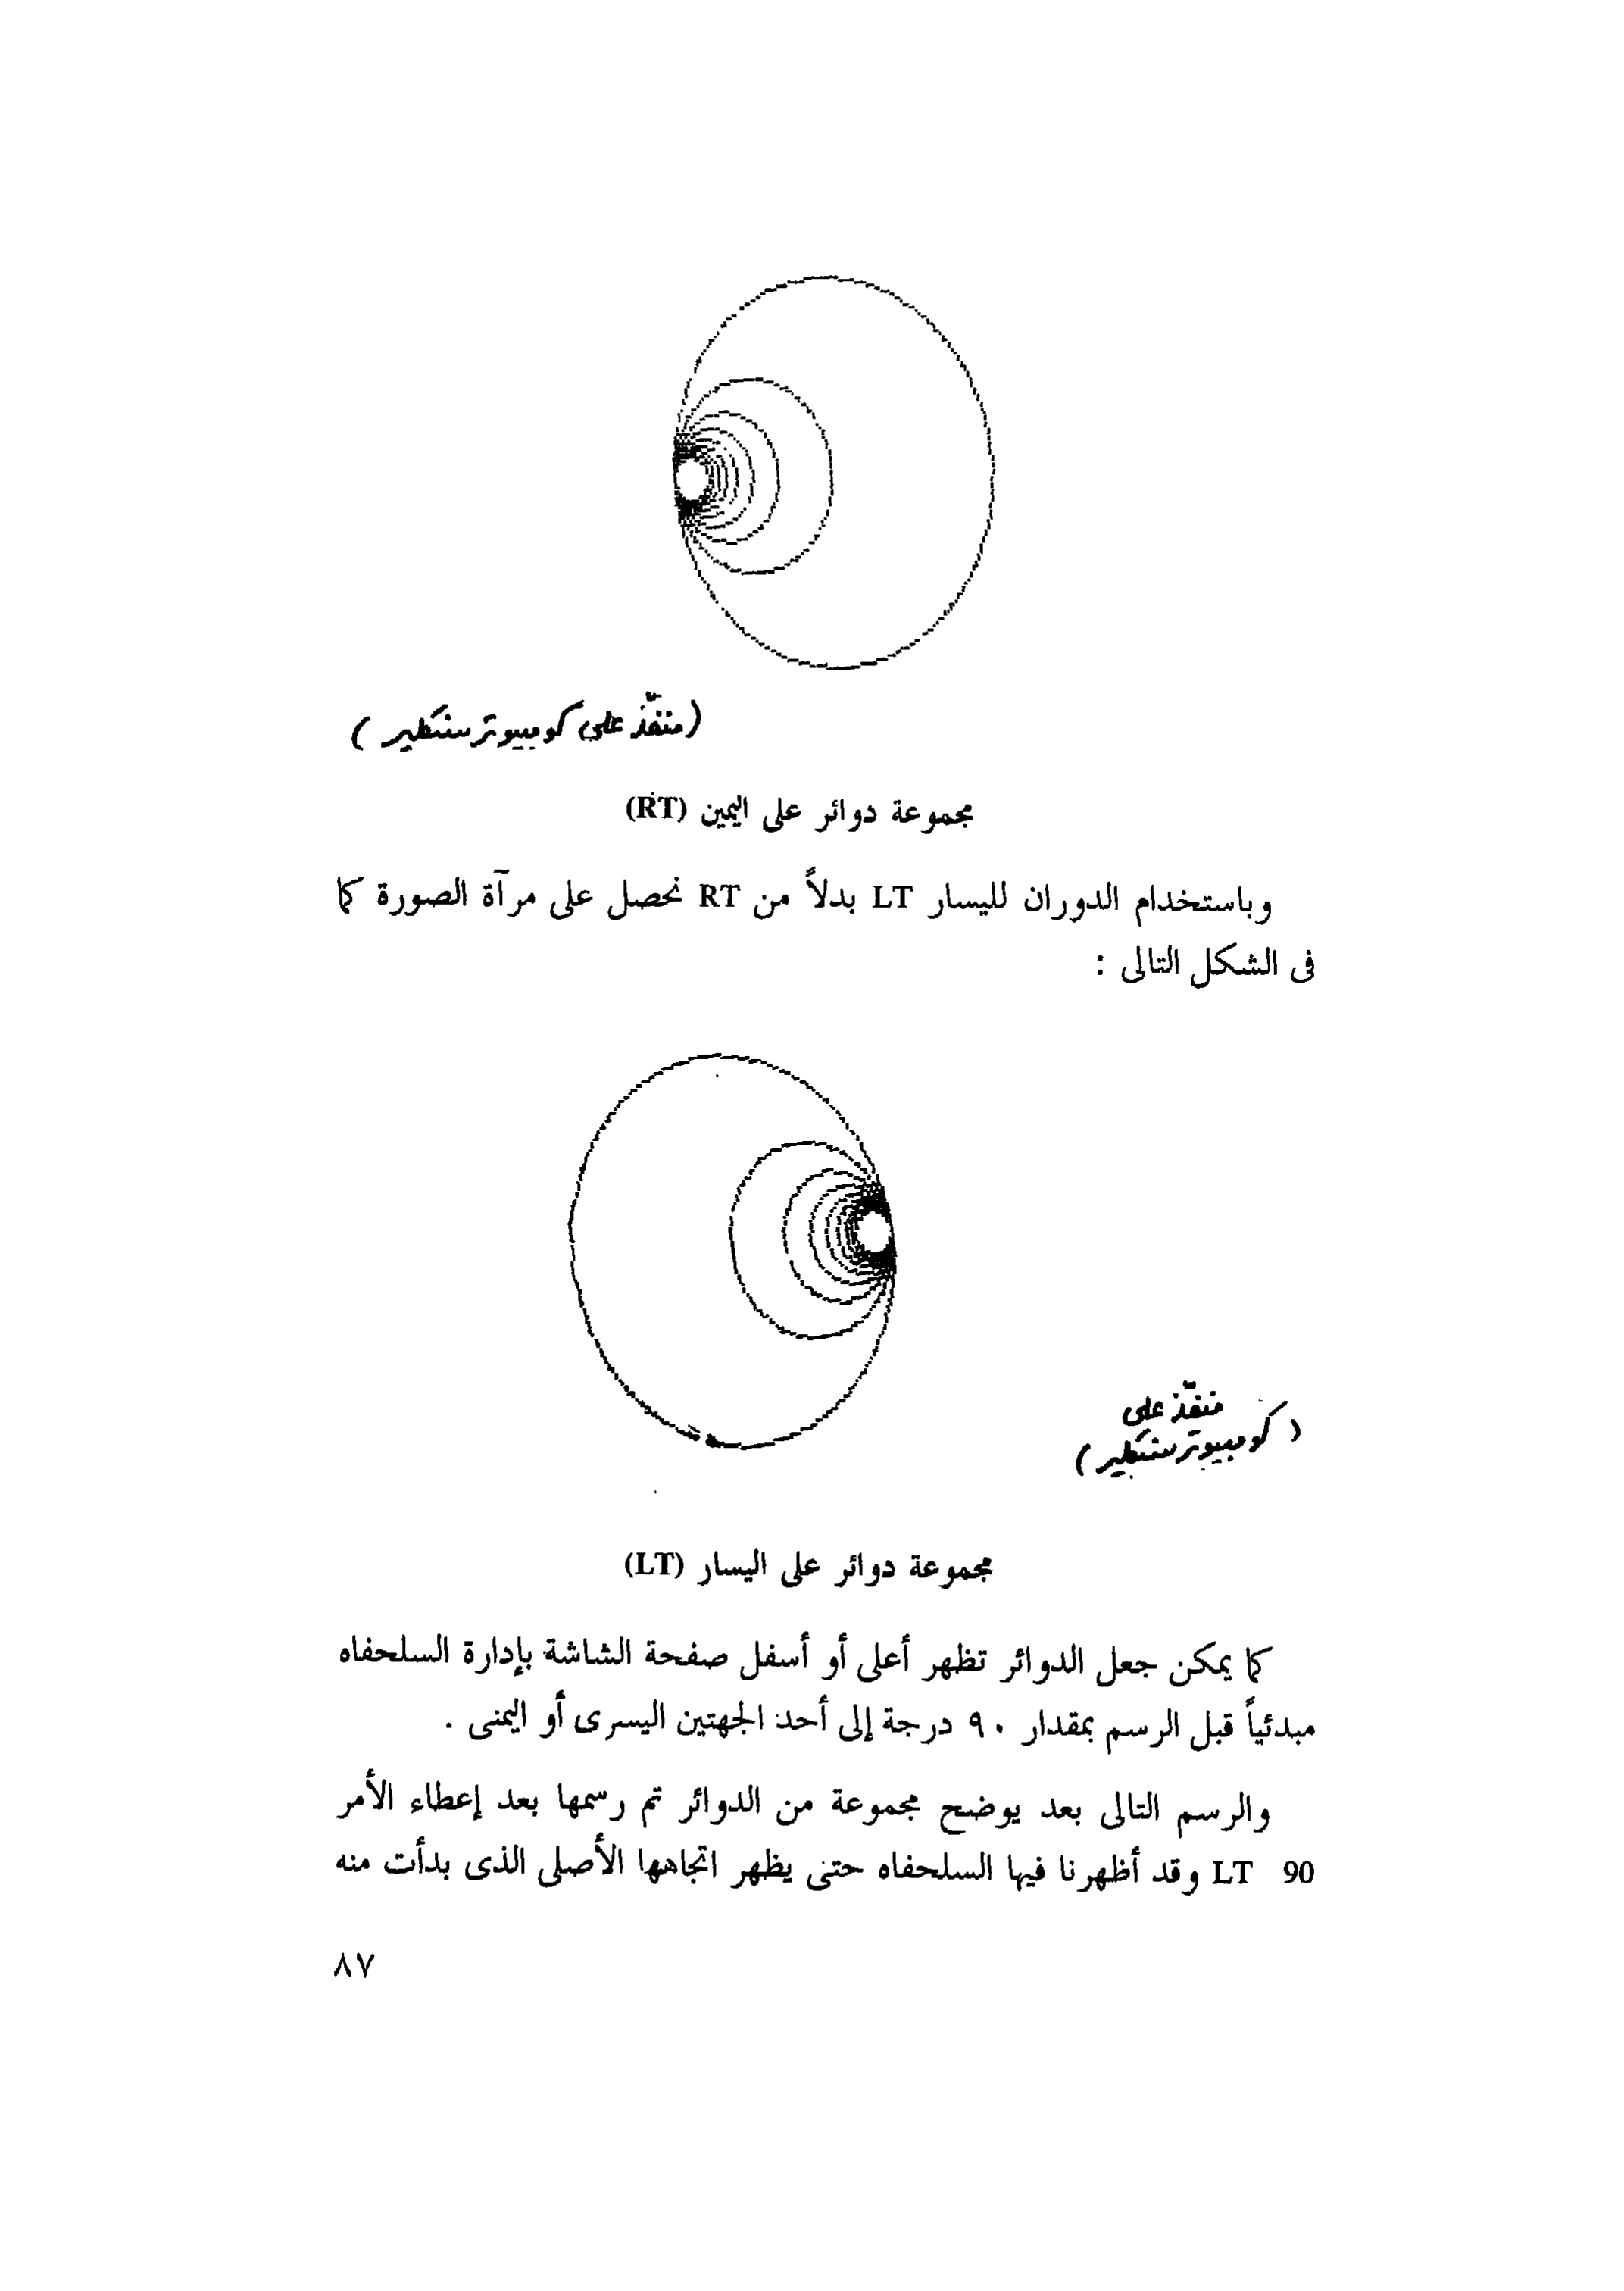 (منفّذ على كومبيوتر سنكلير)
مجموعة دوائر على اليمين (RT)
وباستخدام الدوران لليسار LT بدلاً من RT نحصل على مرآة الصورة كما
فى الشكل التالى :
منفّذ على
(كومبيوتر سنكلير)
مجموعة دوائر على اليسار (LT)
كما يمكن جعل الدوائر تظهر أعلى أو أسفل صفحة الشاشة بإدارة السلحفاه
مبدئياً قبل الرسم بمقدار ٩٠ درجة إلى أحد الجهتين اليسرى أو اليمنى .
والرسم التالى بعد يوضح مجموعة من الدوائر تم رسمها بعد إعطاء الأمر
LT 90 وقد أظهرنا فيها السلحفاه حتى يظهر اتجاهها الأصلى الذى بدأت منه
٨٧